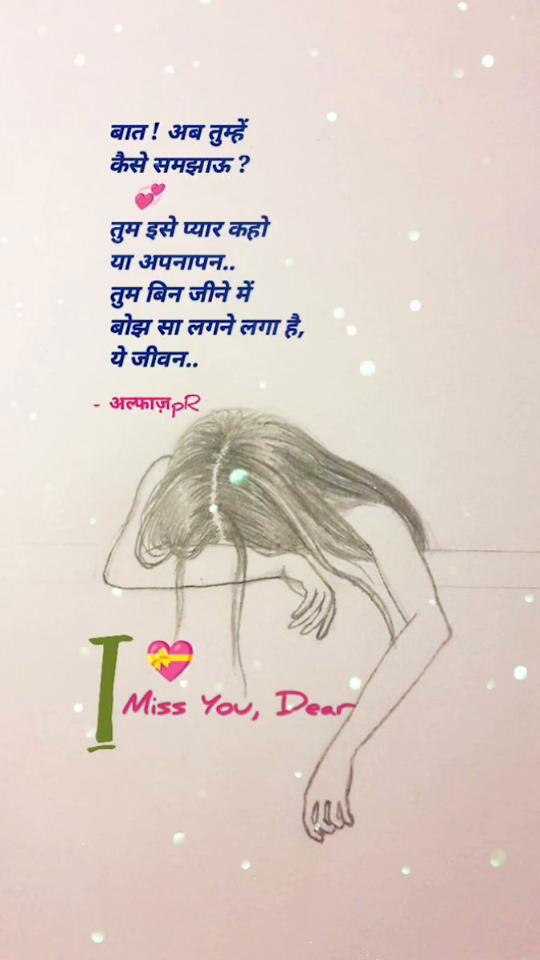 बात ! अब तुम्हें
कैसे समझाऊ ?
💞
तुम इसे प्यार कहो
या अपनापन..
तुम बिन जीने में
बोझ सा लगने लगा है,
ये जीवन..
- अल्फाज़pR
I 💝
Miss You, Dear